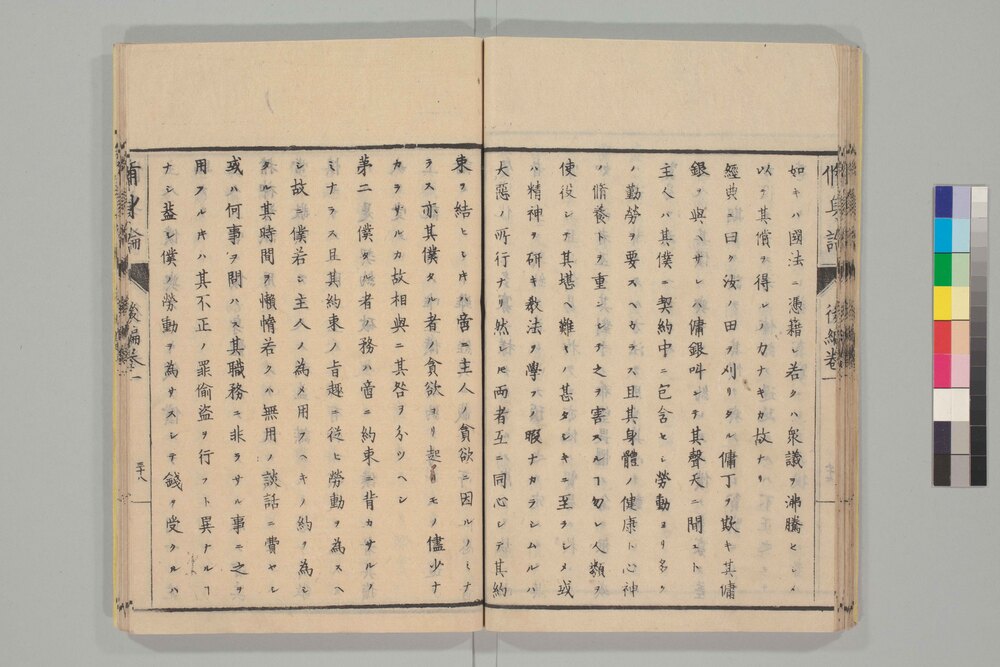 如キハ國法ニ憑籍シ若クハ衆議ヲ沸騰セシメ
以テ其償ヲ得レノ力ナキカ故ナリ
經典ニ曰ク汝ノ田ヲ刈リタル傭丁ヲ欺キ其傭
銀ヲ與ヘサレハ傭銀叫ンテ其聲天ニ聞ユト
主人ハ其僕ニ契約中ニ包含セシ勞動ヨリ多ク
ノ勤勞ヲ要スヘカラス且其身體ノ健康ト心神
ノ脩養トヲ重ンシテ之ヲ害スルヿ勿レ人類ヲ
使役シテ其堪ヘ難キ甚タシキニ至ラシメ或
ハ精神ヲ研キ教法ヲ學フノ暇ナカラシムルハ
大惡ノ所行ナリ然レ𪜈両者互ニ同心シテ其約
束ヲ結ヒシキハ啻ニ主人ノ貪欲ニ因ルノミナ
ラス亦其僕タル者ノ貪欲ヨリ起リモノ儘少ナ
カラサルカ故相與ニ其咎ヲ分ツヘシ
第二 僕タル者ノ務ハ啻ニ約束ニ背カサルノ
ミナラス且其約束ノ旨趣ニ従ヒ勞動ヲ為スヘ
シ故ニ僕若シ主人ノ為メ用フヘキノ約ヲ為シ
タル其時間ヲ懶惰若クハ無用ノ談話ニ費ヤシ
或ハ何事ヲ問ハス其職務ニ非ラサル事ニ之ヲ
用フルキハ其不正ノ罪偷盗ヲ行フト異ナルヿ
ナシ蓋シ僕ノ勞動ヲ為サスシテ錢ヲ受クルハ
脩身論 後編巻一 三十八